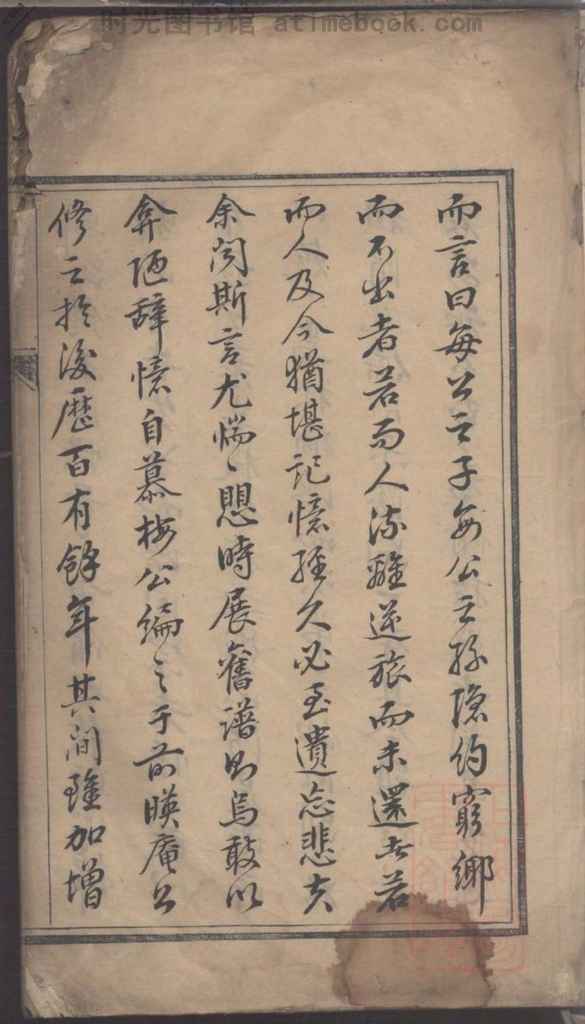 时光图书馆 atimebook.com
而言曰每公之子每公之孫隱約窮鄉
而不出者若而人流離逆旅而未還者若
而人及今猶堪記憶經久必至遺忘悲夫
余闻斯言尤惴〻興時展舊譜則烏敢以
弇陋辭憶自慕梅公编之于前暎庵公
修之於後歷百有餘年其间雖加增